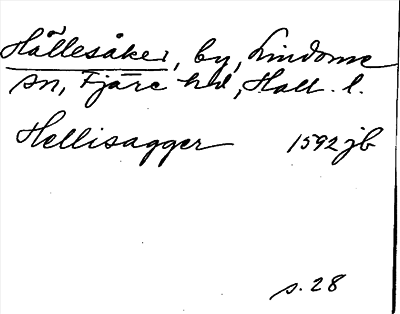 Hällesåker, by, Lindome
sn, Fjäre hd, Hall. l.
Hellisagger 1592 jb
s. 28